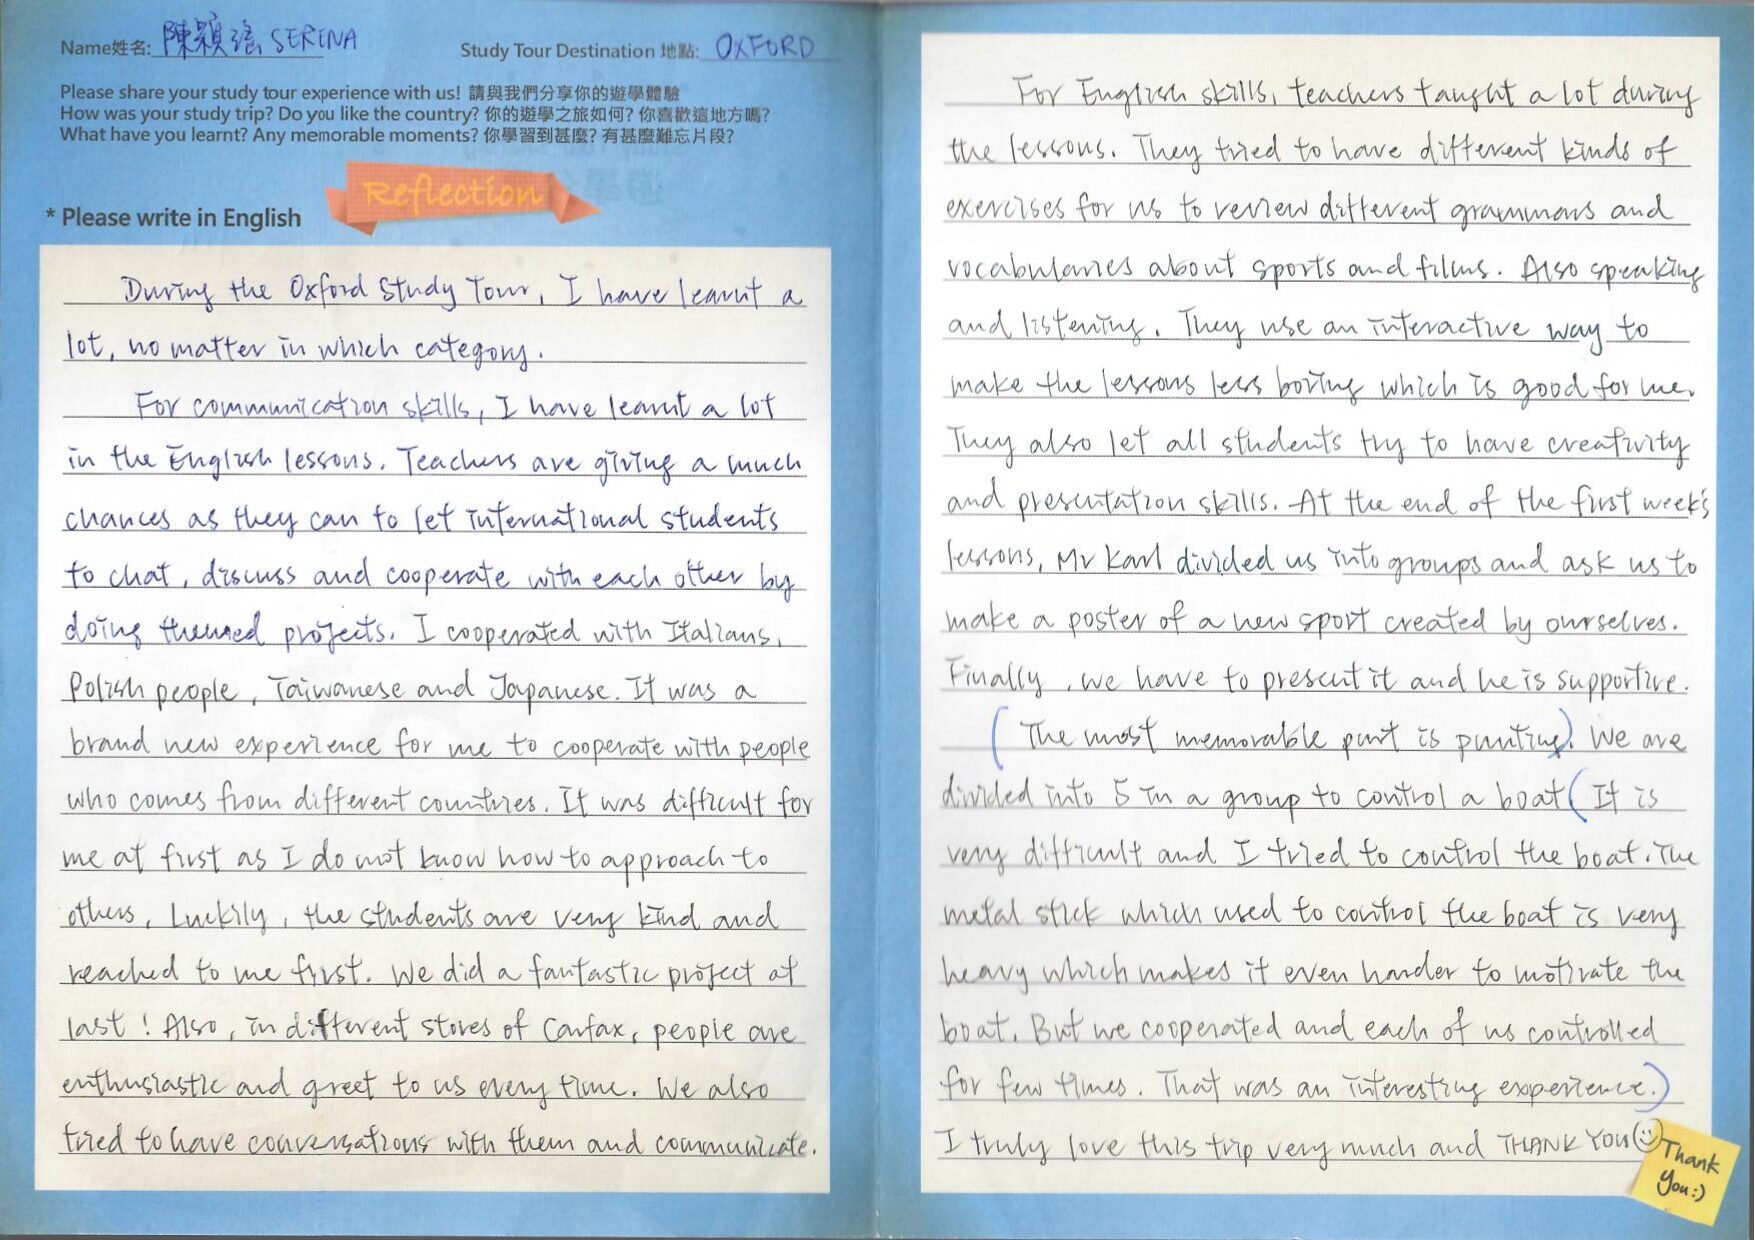 Name姓名: 陳穎瑤 SERENA
Study Tour Destination 地點: OXFORD
Please share your study tour experience with us! 請與我們分享你的遊學體驗
How was your study trip? Do you like the country? 你的遊學之旅如何? 你喜歡這地方嗎?
What have you learnt? Any memorable moments? 你學習到甚麼? 有甚麼難忘片段?
Reflection
* Please write in English
During the Oxford Study Tour, I have learnt a
lot, no matter in which category.
For communication skills, I have learnt a lot
in the English lessons. Teachers are giving a much
chances as they can to let international students
to chat, discuss and cooperate with each other by
doing themed projects. I cooperated with Italians,
Polish people, Taiwanese and Japanese. It was a
brand new experience for me to cooperate with people
who comes from different countries. It was difficult for
me at first as I do not know how to approach to
others. Luckily, the students are very kind and
reached to me first. We did a fantastic project at
last! Also, in different stores of Carfax, people are
enthusiastic and greet to us every time. We also
tried to have conversations with them and communicate.
For English skills, teachers taught a lot during
the lessons. They tried to have different kinds of
exercises for us to review different grammars and
vocabularies about sports and films. Also speaking
and listening. They use an interactive way to
make the lessons less boring which is good for me.
They also let all students try to have creativity
and presentation skills. At the end of the first week's
lessons, Mr Karl divided us into groups and ask us to
make a poster of a new sport created by ourselves.
Finally, we have to present it and he is supportive.
(The most memorable part is punting). We are
divided into 5 in a group to control a boat (It is
very difficult and I tried to control the boat. The
metal stick which used to control the boat is very
heavy which makes it even harder to motivate the
boat. But we cooperated and each of us controlled
for few times. That was an interesting experience.)
I truly love this trip very much and THANK YOU☺
Thank
You:)